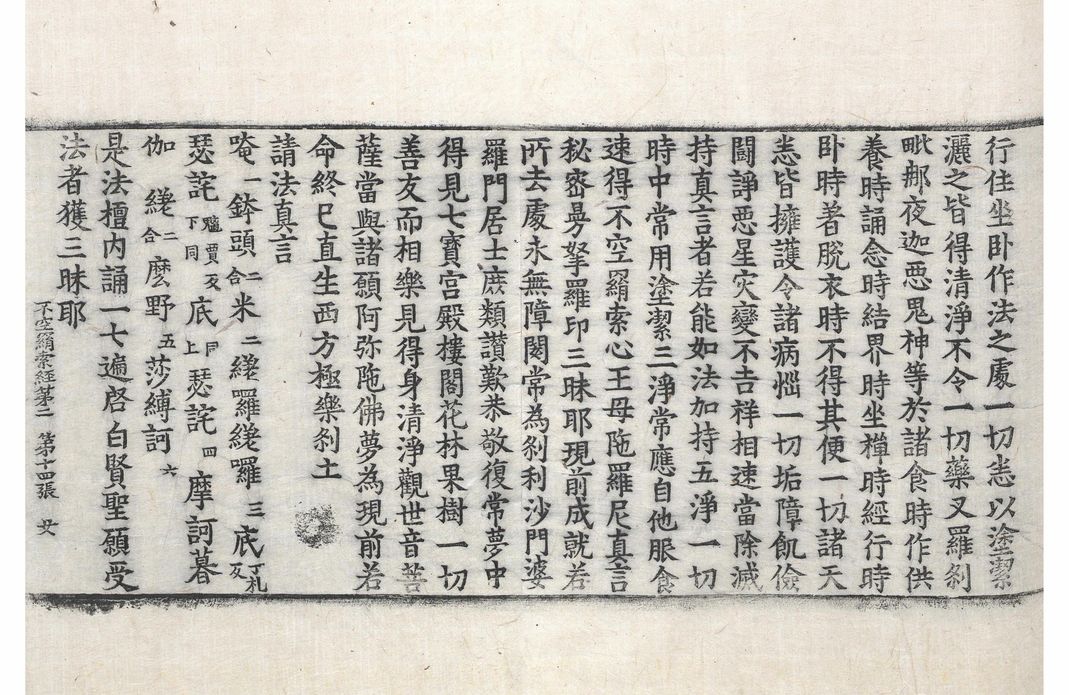 行住坐卧作法之處一切悉以塗潔
灑之皆得清淨不令一切藥叉羅剎
毗那夜迦惡鬼神等於諸食時作供
養時誦念時結界時坐禪時經行時
卧時著脫衣時不得其便一切諸天
悉皆擁護令諸病惱一切垢障飢儉
鬪諍惡星灾變不吉祥相速當除滅
持真言者若能如法加持五淨一切
時中常用塗潔三淨常應自他服食
速得不空羂索心王母陁羅尼真言
秘密曼拏羅印三昧耶現前成就若
所去處永無障閡常為剎利沙門婆
羅門居士庶類讚歎恭敬復常夢中
得見七寶宮殿樓閣花林果樹一切
善友而相樂見得身清淨觀世音菩
薩當與諸願阿弥陁佛夢為現前若
命終已直生西方極樂剎土
請法真言
唵一鉢頭二合米二䌈羅䌈囉三底丁礼反
瑟詫魑賈反下同底同上瑟詫四摩訶暮
伽䌈二合麼野五莎縛訶六
是法壇内誦一七遍啓白賢聖願受
法者獲三昧耶
不空羂索經第二 第十四張